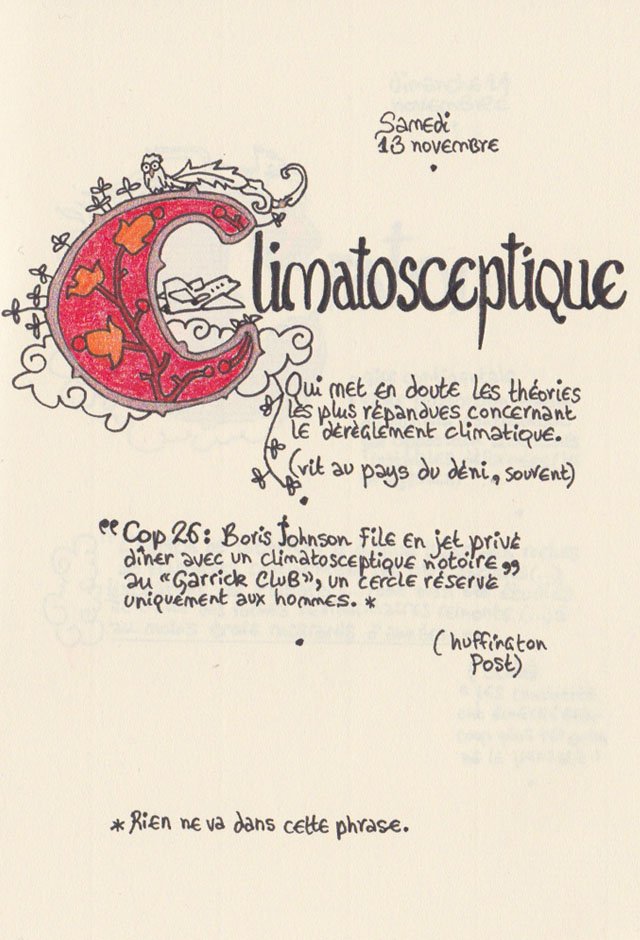 Samedi
13 novembre
Climatosceptique
Qui met en doute les théories
les plus répandues concernant
le dérèglement climatique.
(vit au pays du déni, souvent)
“Cop 26 : Boris Johnson file en jet privé
dîner avec un climatosceptique notoire”
au «Garrick Club», un cercle réservé
uniquement aux hommes. *
(huffington
Post)
* Rien ne va dans cette phrase.